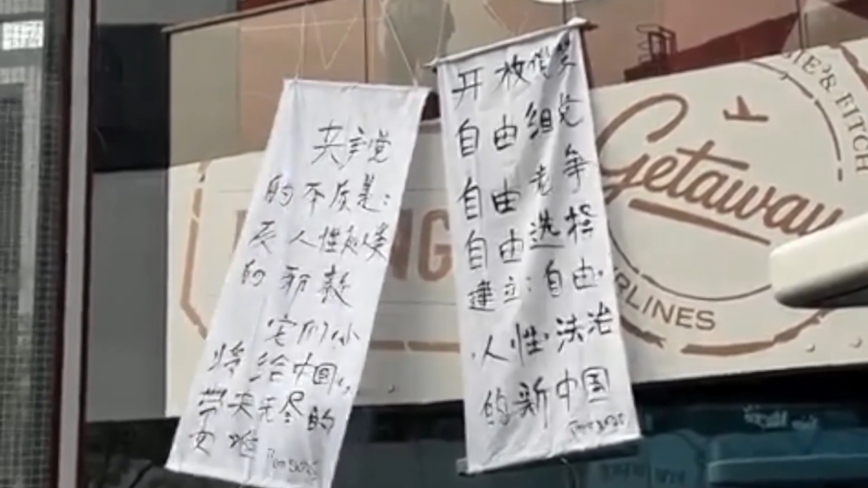 共产党
的本质是:
反人性
的邪教
它们
将给中国
带来无尽的
灾难
开放党禁
自由组党
自由竞争
自由选择
建立:自由·
·人性·法治
的新中国
Getaway
IE'S & FITCH
RLINES
NG